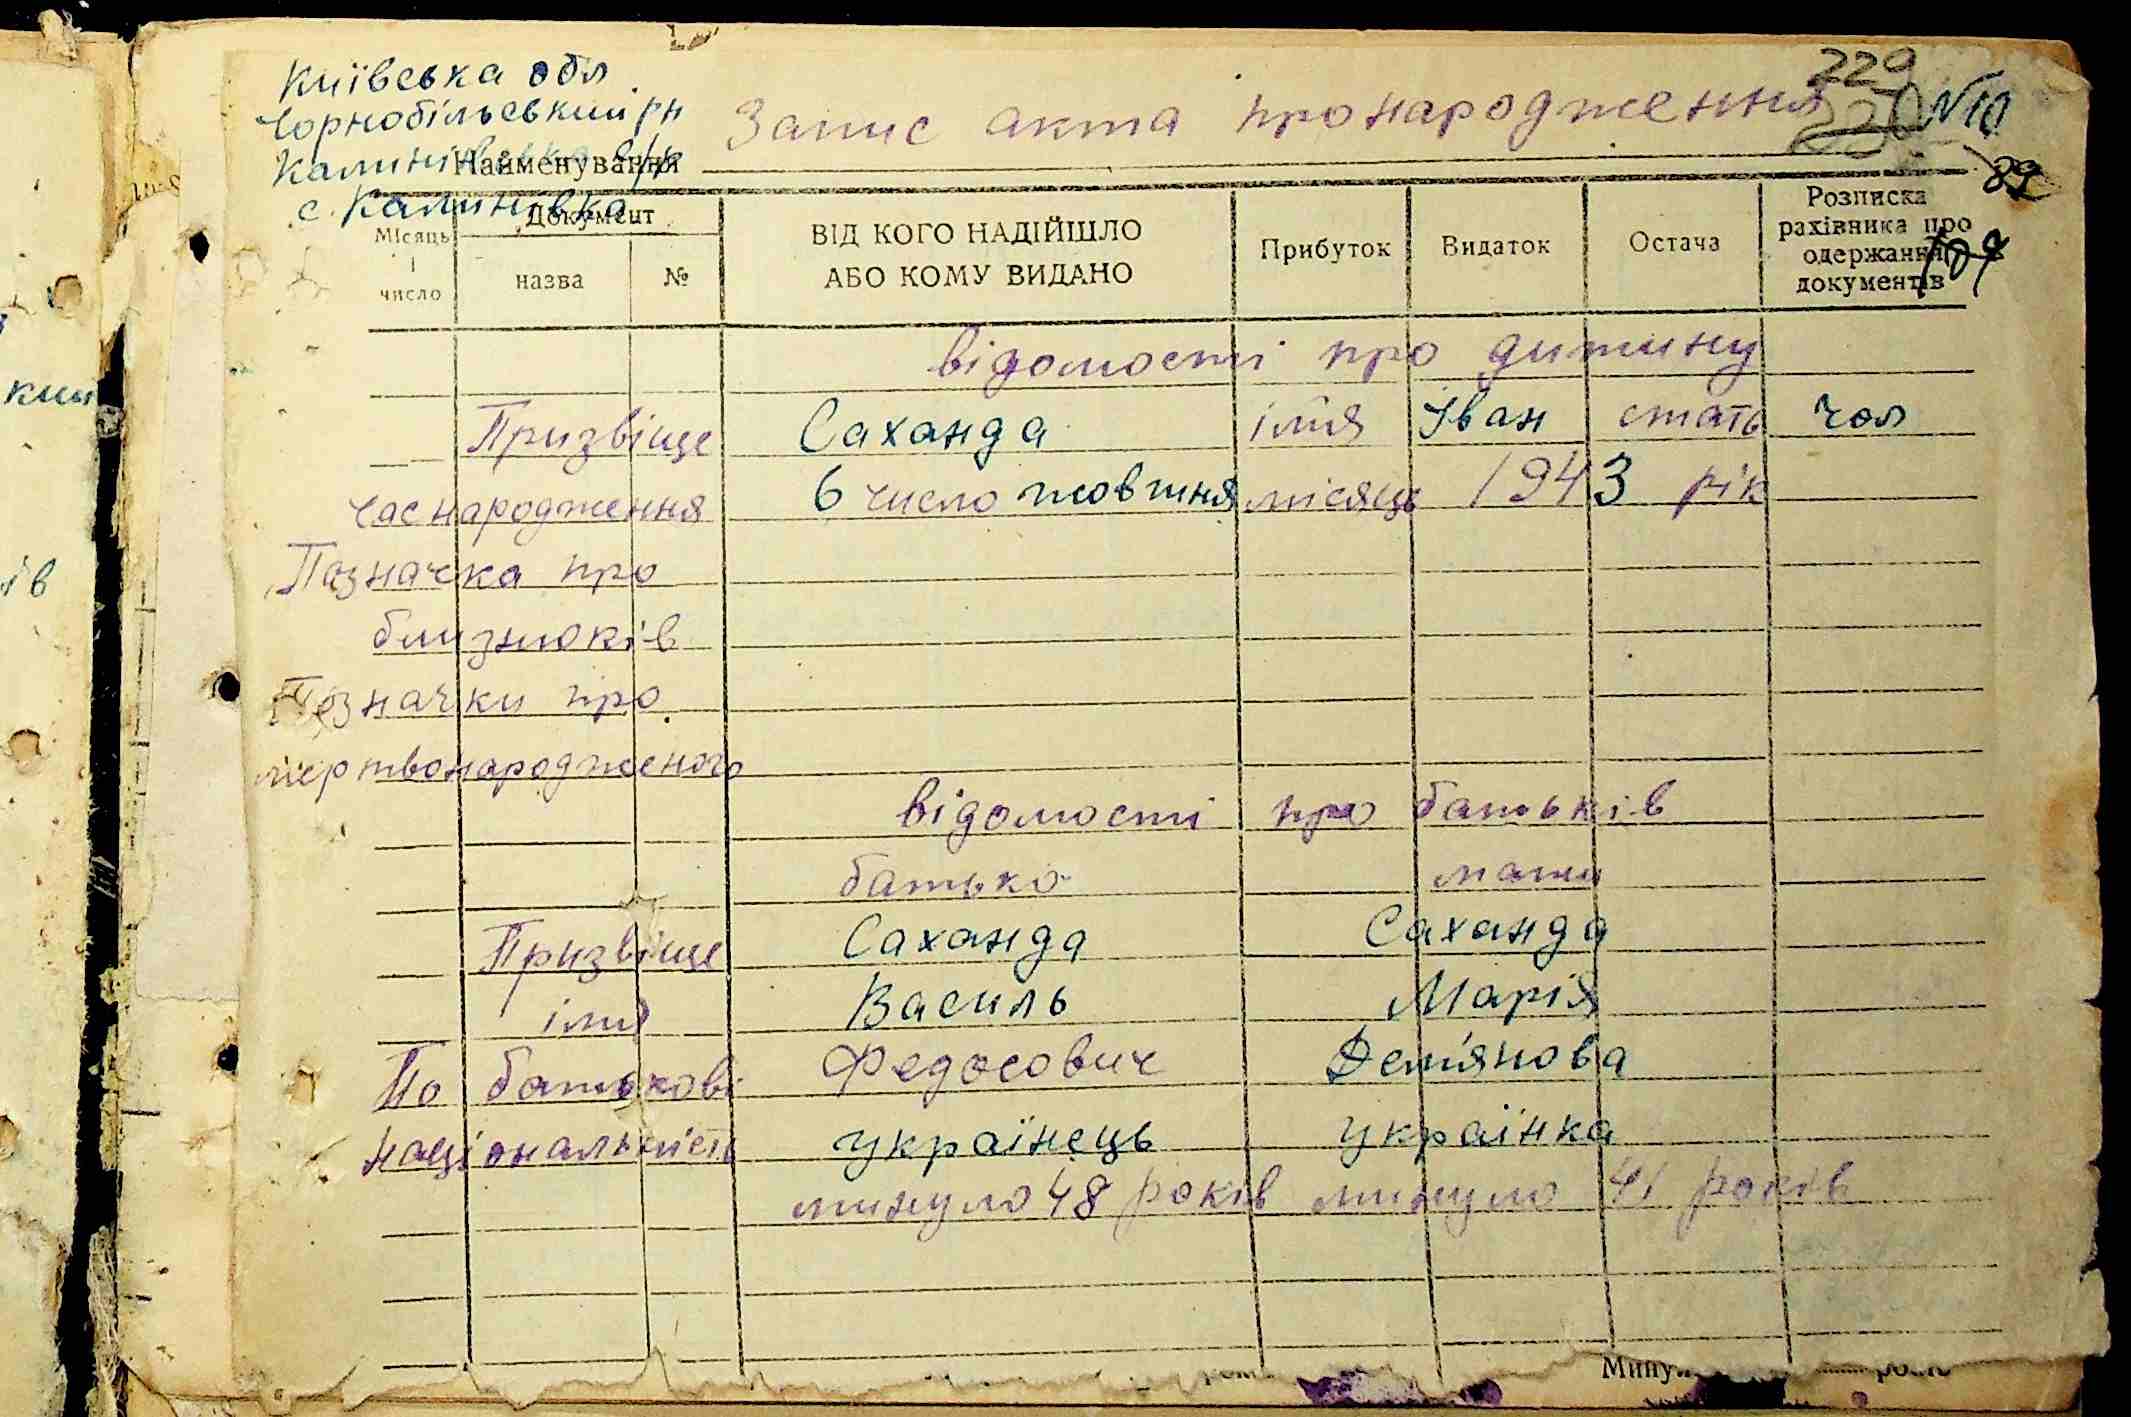 Київська обл
Чорнобільський рн
Калинівська с/р
с. Калинівка
Запис акта про народження
229
230
N10
89
Найменування
Місяць і число
Документ
назва
№
ВІД КОГО НАДІЙШЛО
АБО КОМУ ВИДАНО
Прибуток
Видаток
Остача
Розписка
рахівника про
одержання
документів
відомості про дитину
Призвіще Саханда імя Іван стать чол
час народження 6 число жовтня місяць 1943 рік
Позначка про
близнюків
Позначки про
мертвонародженого
відомості про батьків
батько мати
Призвіще Саханда Саханда
імя Василь Марія
По батькові Федосович Дем'янова
національність українець українка
минуло 48 років минуло 41 років
Минул